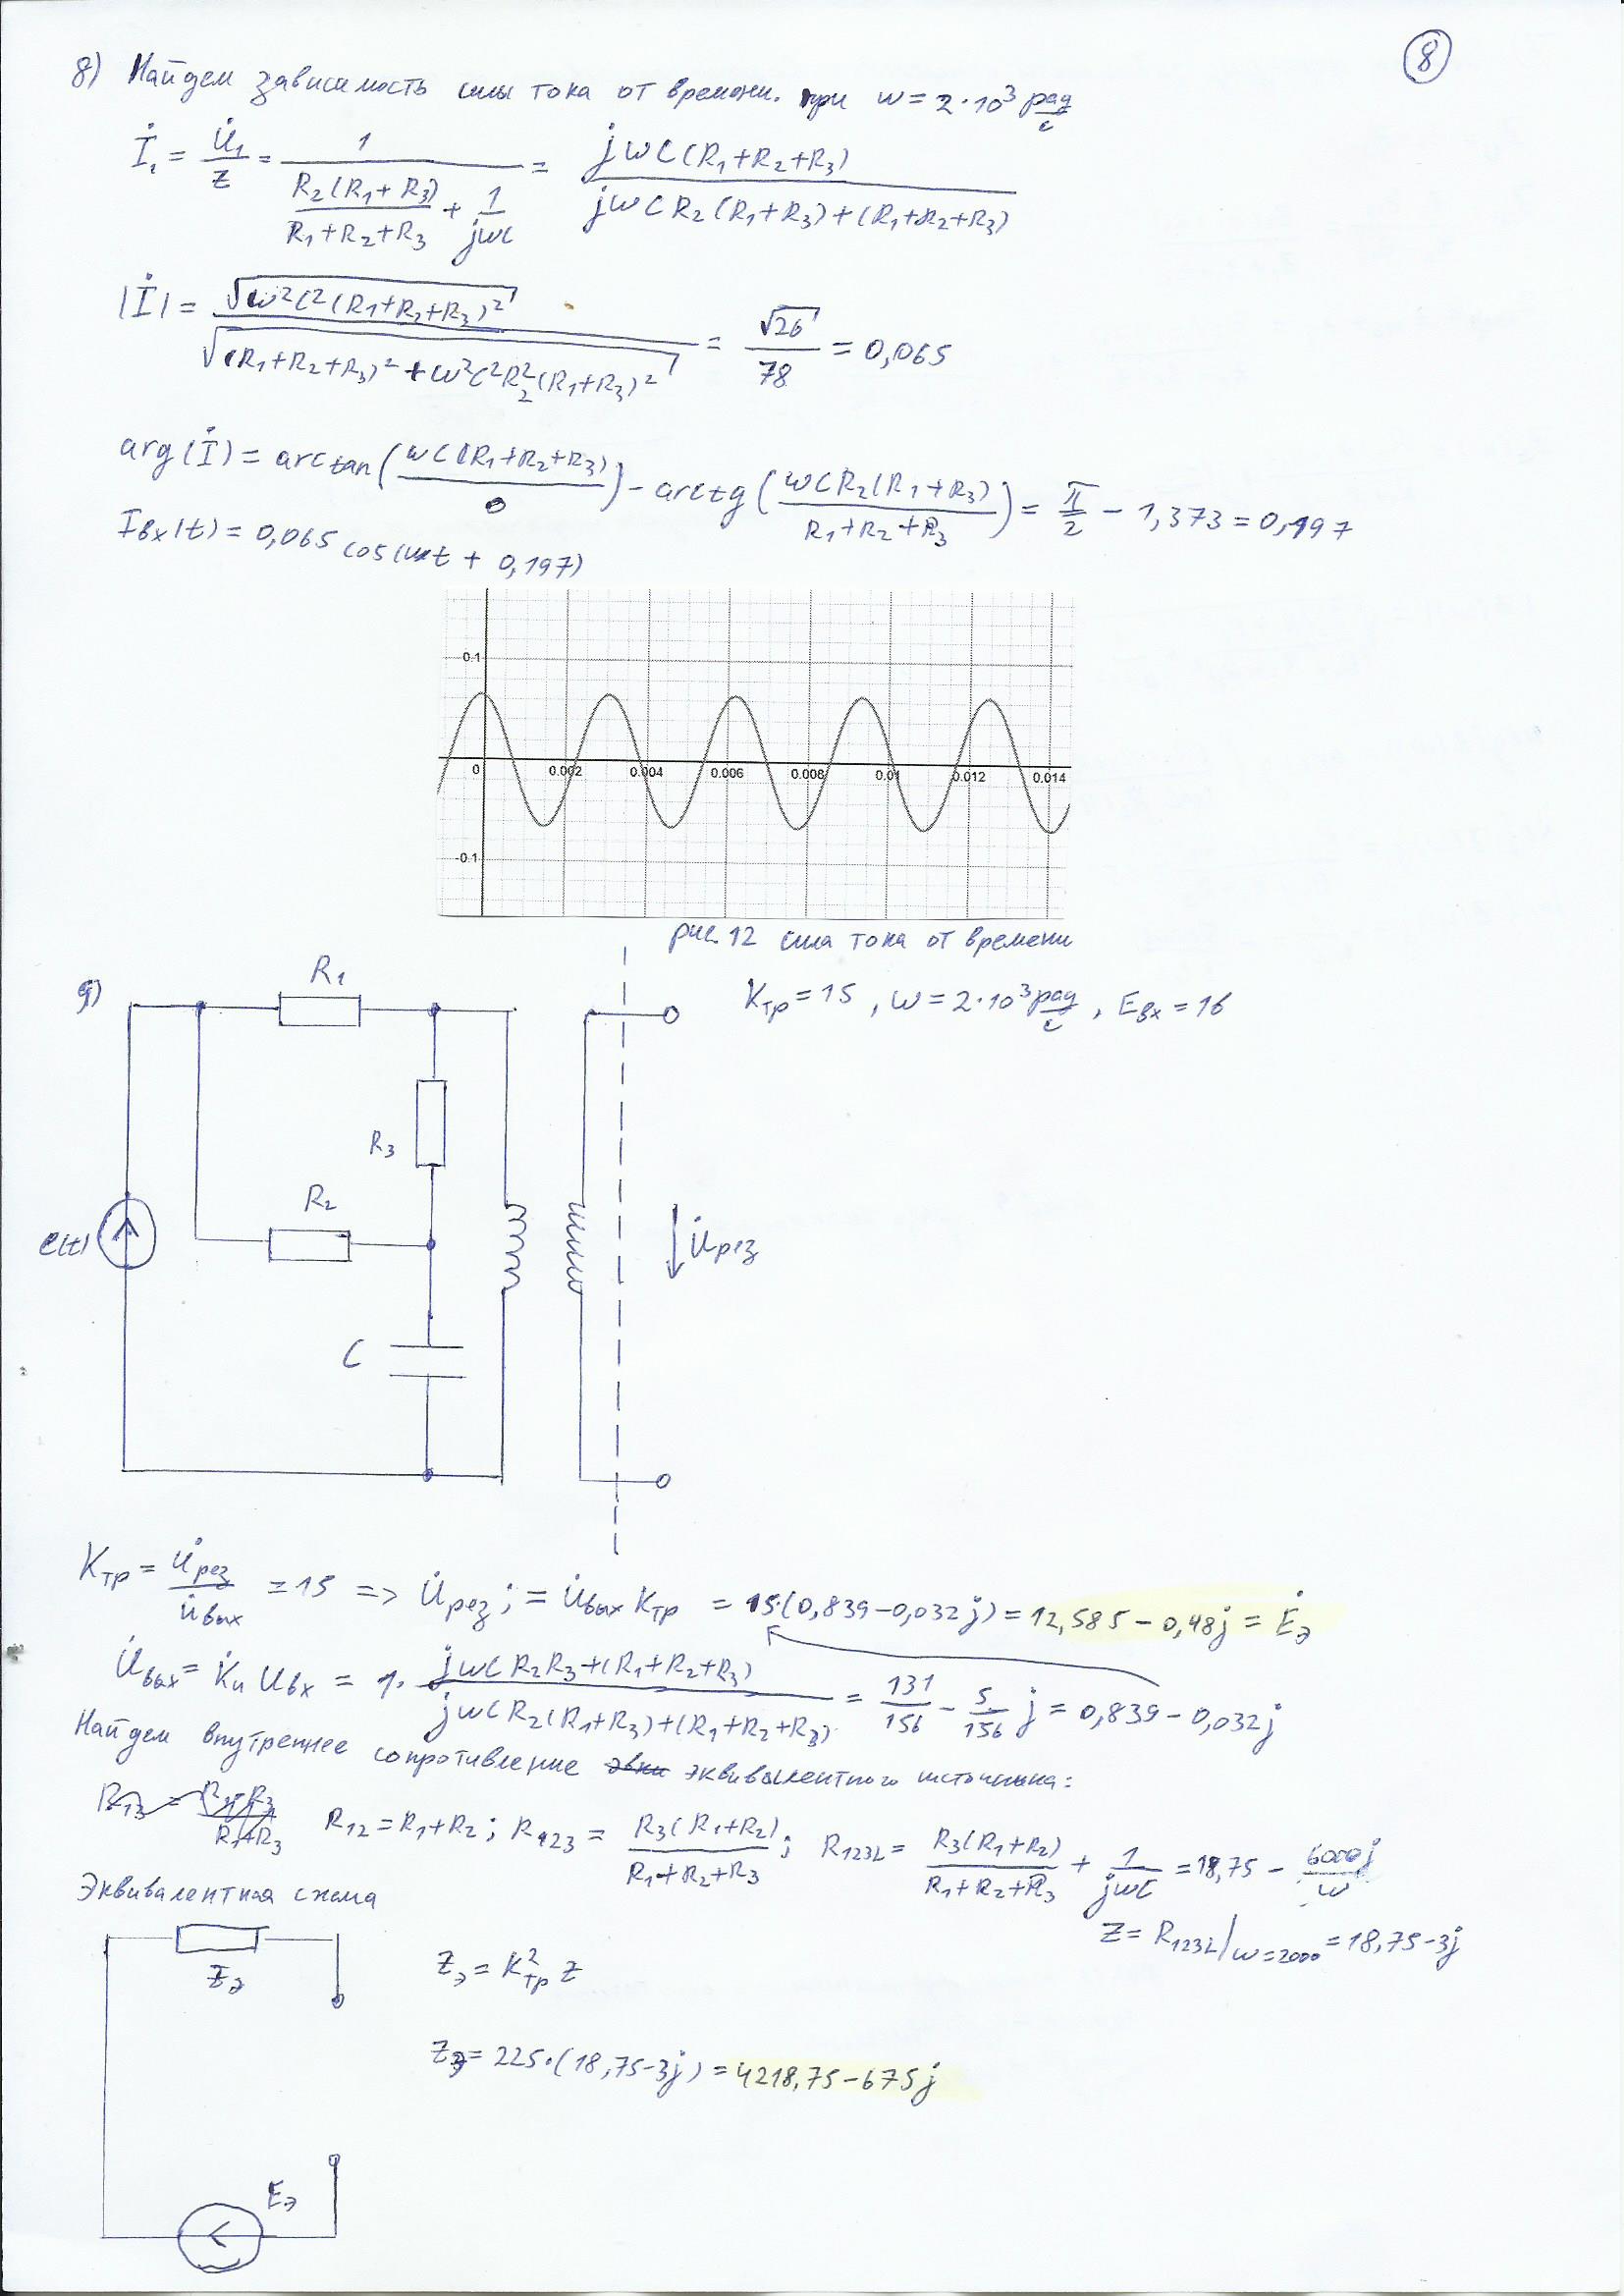 8
8) Найдем зависимость силы тока от времени. при w = 2·10³ рад/с
İ₁ = U̇₁/Z = 1/(R₂(R₁+R₃)/(R₁+R₂+R₃) + 1/jwC) = jwC(R₁+R₂+R₃)/(jwCR₂(R₁+R₃)+(R₁+R₂+R₃))
|İ| = √(w²C²(R₁+R₂+R₃)²)/√((R₁+R₂+R₃)²+w²C²R₂²(R₁+R₃)²) = √26/78 = 0,065
arg(İ) = arctan(wC(R₁+R₂+R₃)/0) - arctg(wCR₂(R₁+R₃)/(R₁+R₂+R₃)) = π/2 - 1,373 = 0,197
Iвх(t) = 0,065 cos(wt + 0,197)
0.1
0 0.002 0.004 0.006 0.008 0.01 0.012 0.014
-0.1
рис. 12 сила тока от времени
9)
R₁
Kтр = 15, w = 2·10³ рад/с, Eвх = 1В
R₃
R₂
e(t)
U̇рез
C
Kтр = U̇рез/U̇вых = 15 => U̇рез; = U̇вых Kтр = 15·(0,839-0,032j) = 12,585 - 0,48j = Ėэ
U̇вых = K̇и Uвх = 1· (jwCR₂R₃+(R₁+R₂+R₃))/(jwCR₂(R₁+R₃)+(R₁+R₂+R₃)) = 131/156 - 5/156 j = 0,839 - 0,032j
Найдем внутреннее сопротивление эквивалентного источника:
R₁₂ = R₁+R₂; R₁₂₃ = R₃(R₁+R₂)/(R₁+R₂+R₃); R₁₂₃L = R₃(R₁+R₂)/(R₁+R₂+R₃) + 1/jwC = 18,75 - 6000j/w
Z = R₁₂₃L|w=2000 = 18,75-3j
Эквивалентная схема
Zэ
Zэ = K²тр Z
Zэ = 225·(18,75-3j) = 4218,75-675j
Eэ